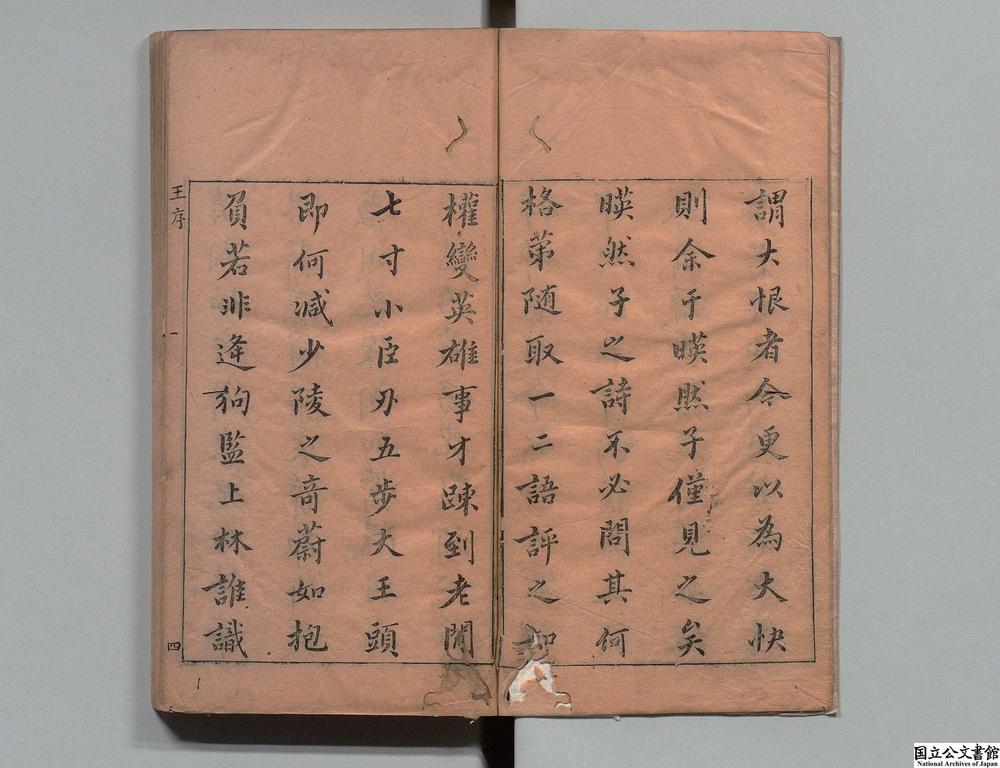 謂大恨者令更以為大快
則余于暎然子僅見之矣
暎然子之詩不必問其何
格第随取一二語評之如
權變英雄事才踈到老閒
七寸小臣刃五步大王頭
即何減少陵之竒蔚如抱
負若非逢狗監上林誰識
王序
一
四
国立公文書館
National Archives of Japan